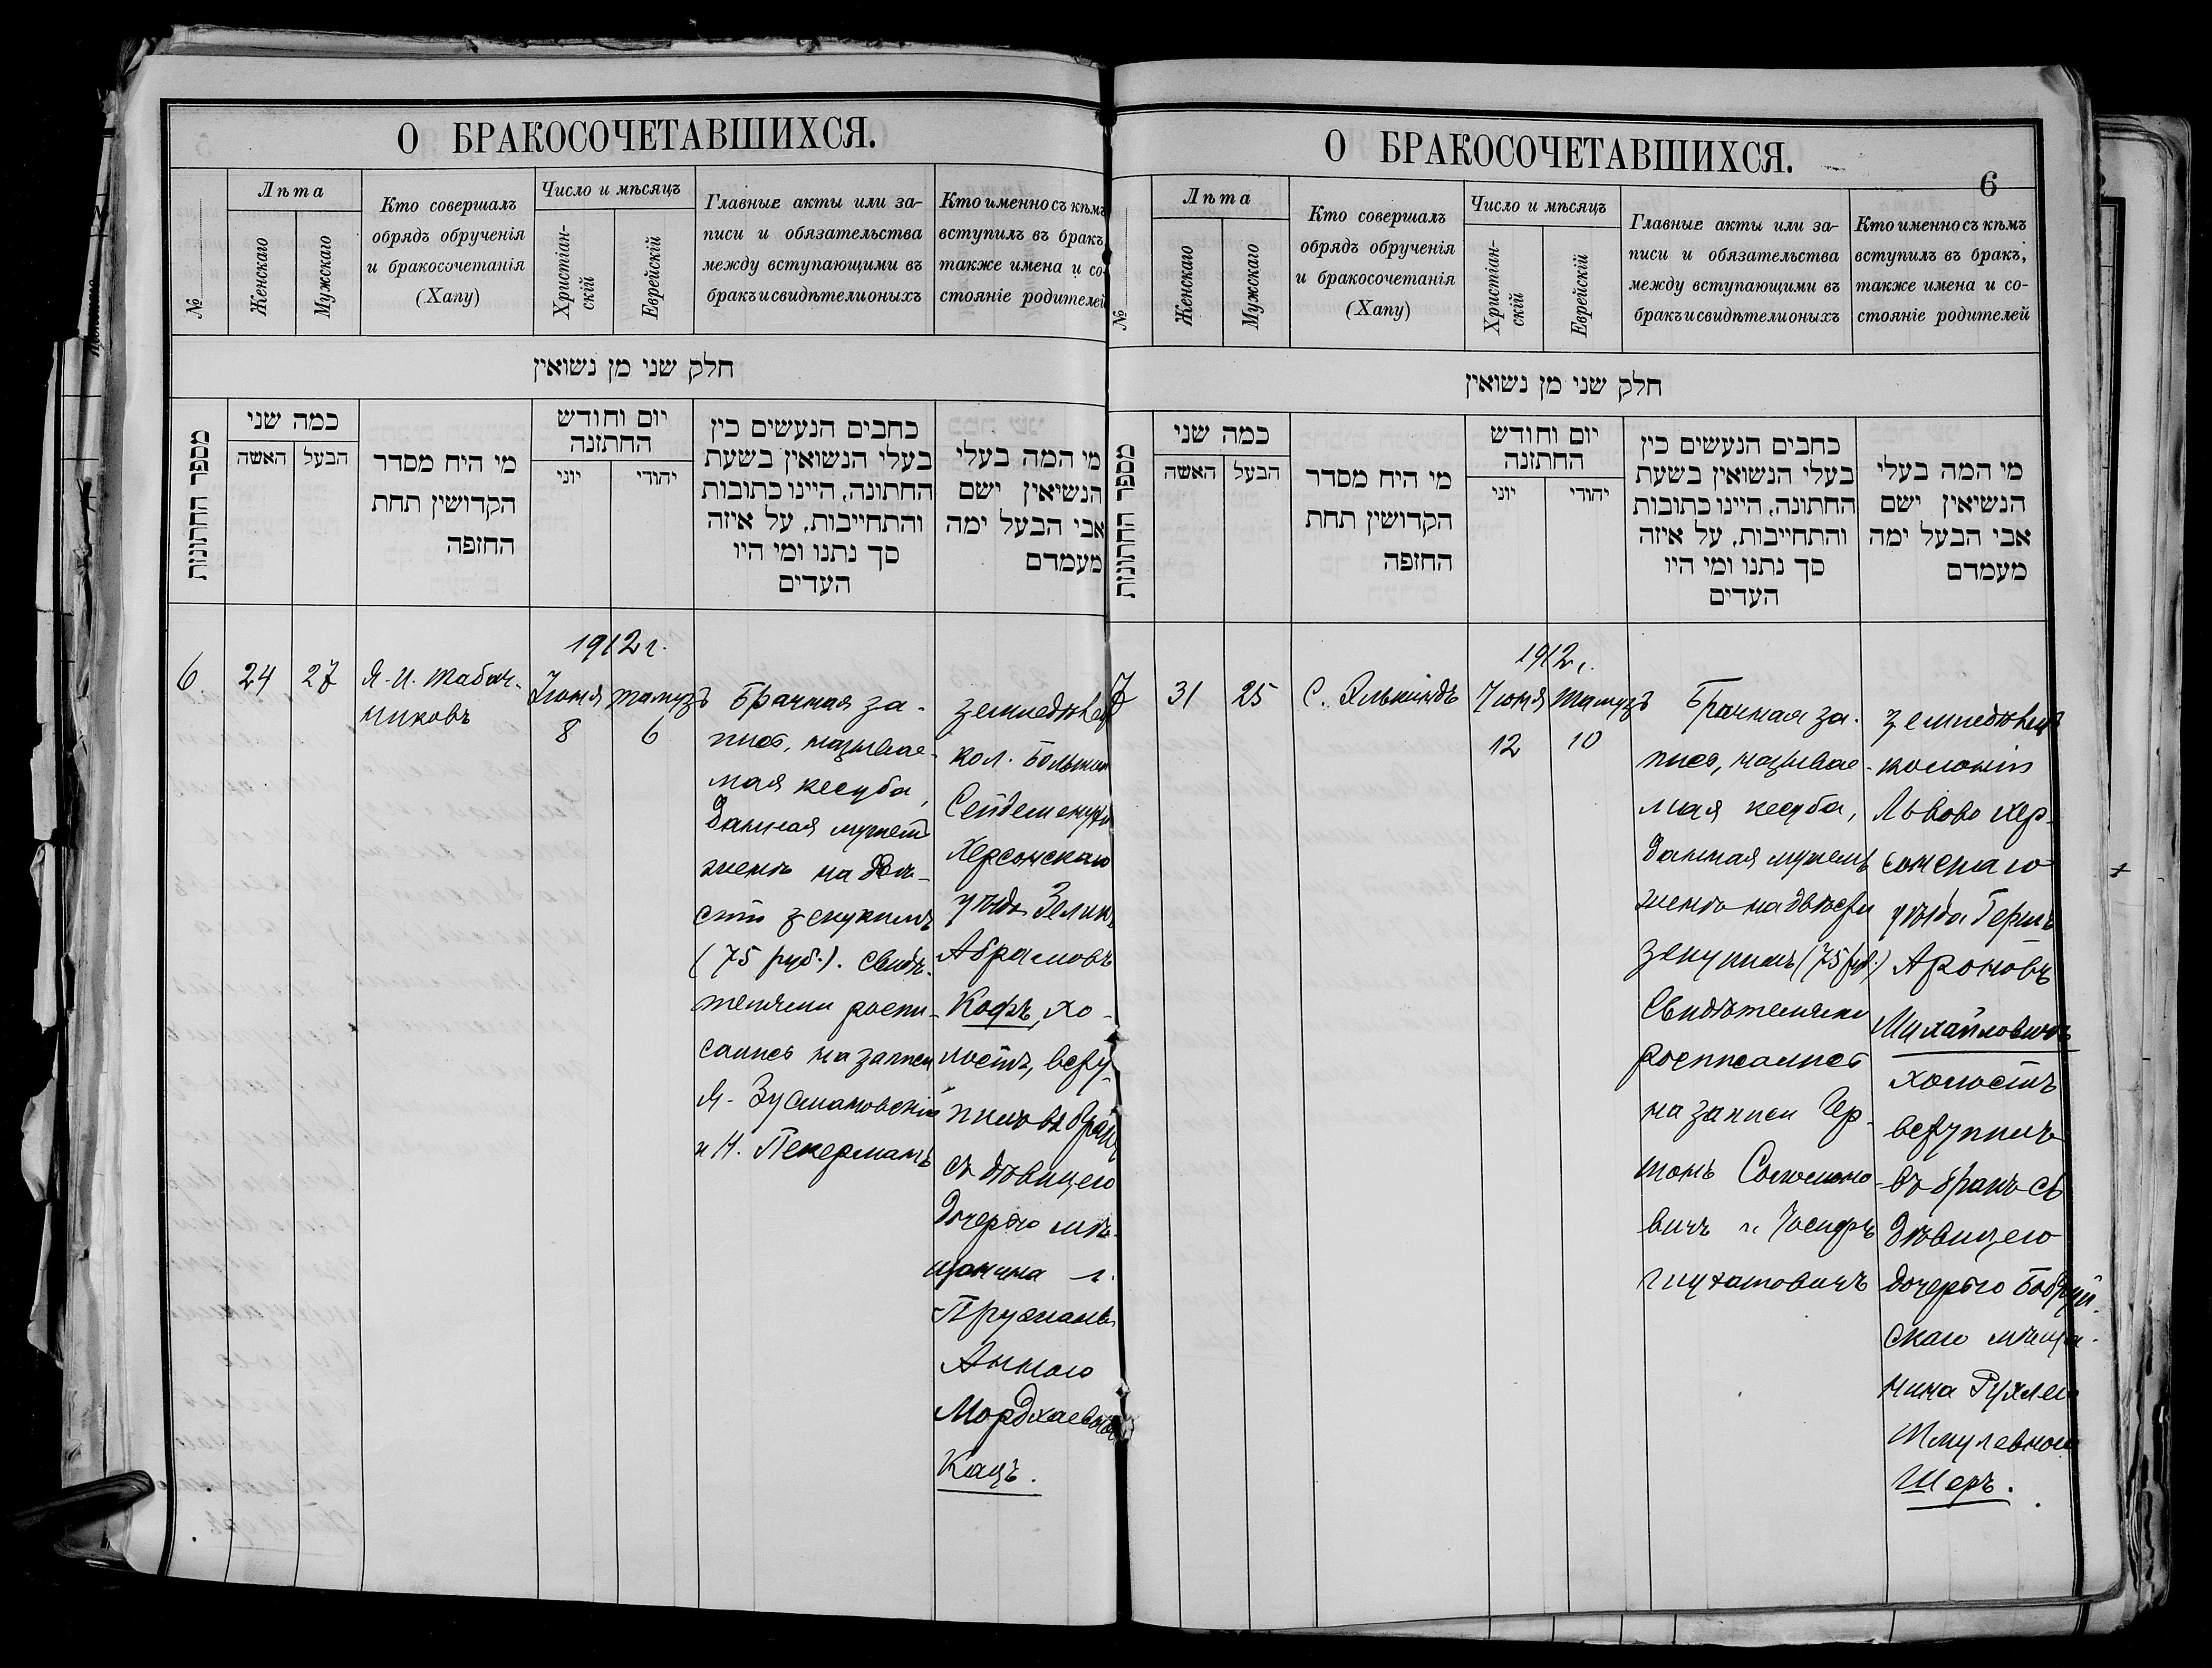 О БРАКОСОЧЕТАВШИХСЯ.
№
Лѣта
Женскаго
Мужскаго
Кто совершалъ
обрядъ обрученія
и бракосочетанія
(Хапу)
Число и мѣсяцъ
Христіан-
скій
Еврейскій
Главные акты или за-
писи и обязательства
между вступающими въ
бракъ и свидѣтели оныхъ
Кто именно съ кѣмъ
вступилъ въ бракъ,
также имена и со-
стояніе родителей
חלק שני מן נשואין
מספר החתונות
כמה שני
האשה
הבעל
מי היח מסדר
הקדושין תחת
החופה
יום וחודש
החתונה
יוני
יהודי
כתבים הנעשים בין
בעלי הנשואין בשעת
החתונה, היינו כתובות
והתחייבות, על איזה
סך נתנו ומי היו
העדים
מי המה בעלי
הנשיאין ישם
אבי הבעל ימה
מעמדם
6.
24
27
Я. И. Табач-
никовъ
1912 г.
Іюня
8
Тамузъ
6
Брачная за-
пись, называе-
мая кесуба,
данная мужемъ
женѣ на двѣ-
сти зекукимъ
(75 руб.). Свидѣ-
телями роспи-
сались на записи
Я. Зусмановскій
и Н. Пекерманъ
земледѣлецъ
кол. Большой
Сейдеменухи
Херсонскаго
уѣзда Зеликъ
Абрамовъ
Кофъ, хо-
лостъ, всту-
пилъ въ бракъ
съ дѣвицею
дочерью мѣ-
щанина г.
Пружаны
Анною
Мордхаевною
Кацъ.
О БРАКОСОЧЕТАВШИХСЯ.
6
№
Лѣта
Женскаго
Мужскаго
Кто совершалъ
обрядъ обрученія
и бракосочетанія
(Хапу)
Число и мѣсяцъ
Христіан-
скій
Еврейскій
Главные акты или за-
писи и обязательства
между вступающими въ
бракъ и свидѣтели оныхъ
Кто именно съ кѣмъ
вступилъ въ бракъ,
также имена и со-
стояніе родителей
חלק שני מן נשואין
מספר החתונות
כמה שני
האשה
הבעל
מי היח מסדר
הקדושין תחת
החופה
יום וחודש
החתונה
יוני
יהודי
כתבים הנעשים בין
בעלי הנשואין בשעת
החתונה, היינו כתובות
והתחייבות, על איזה
סך נתנו ומי היו
העדים
מי המה בעלי
הנשיאין ישם
אבי הבעל ימה
מעמדם
7
31
25
С. Элькиндъ
1912 г.
Іюня
12
Тамузъ
10
Брачная за-
пись, называе-
мая кесуба,
данная мужемъ
женѣ на двѣсти
зекукимъ (75 руб.)
Свидѣтелями
росписались
на записи
Соломоно-
вичъ и Іосифъ
земледѣлецъ
колоніи
Львово Хер-
сонскаго
уѣзда Гершъ
Ароновъ
Михайловичъ
холостъ
вступилъ
въ бракъ съ
дѣвицею
дочерью Бобруй-
скаго мѣща-
нина Рухлею
Шмулевною
Шеръ.